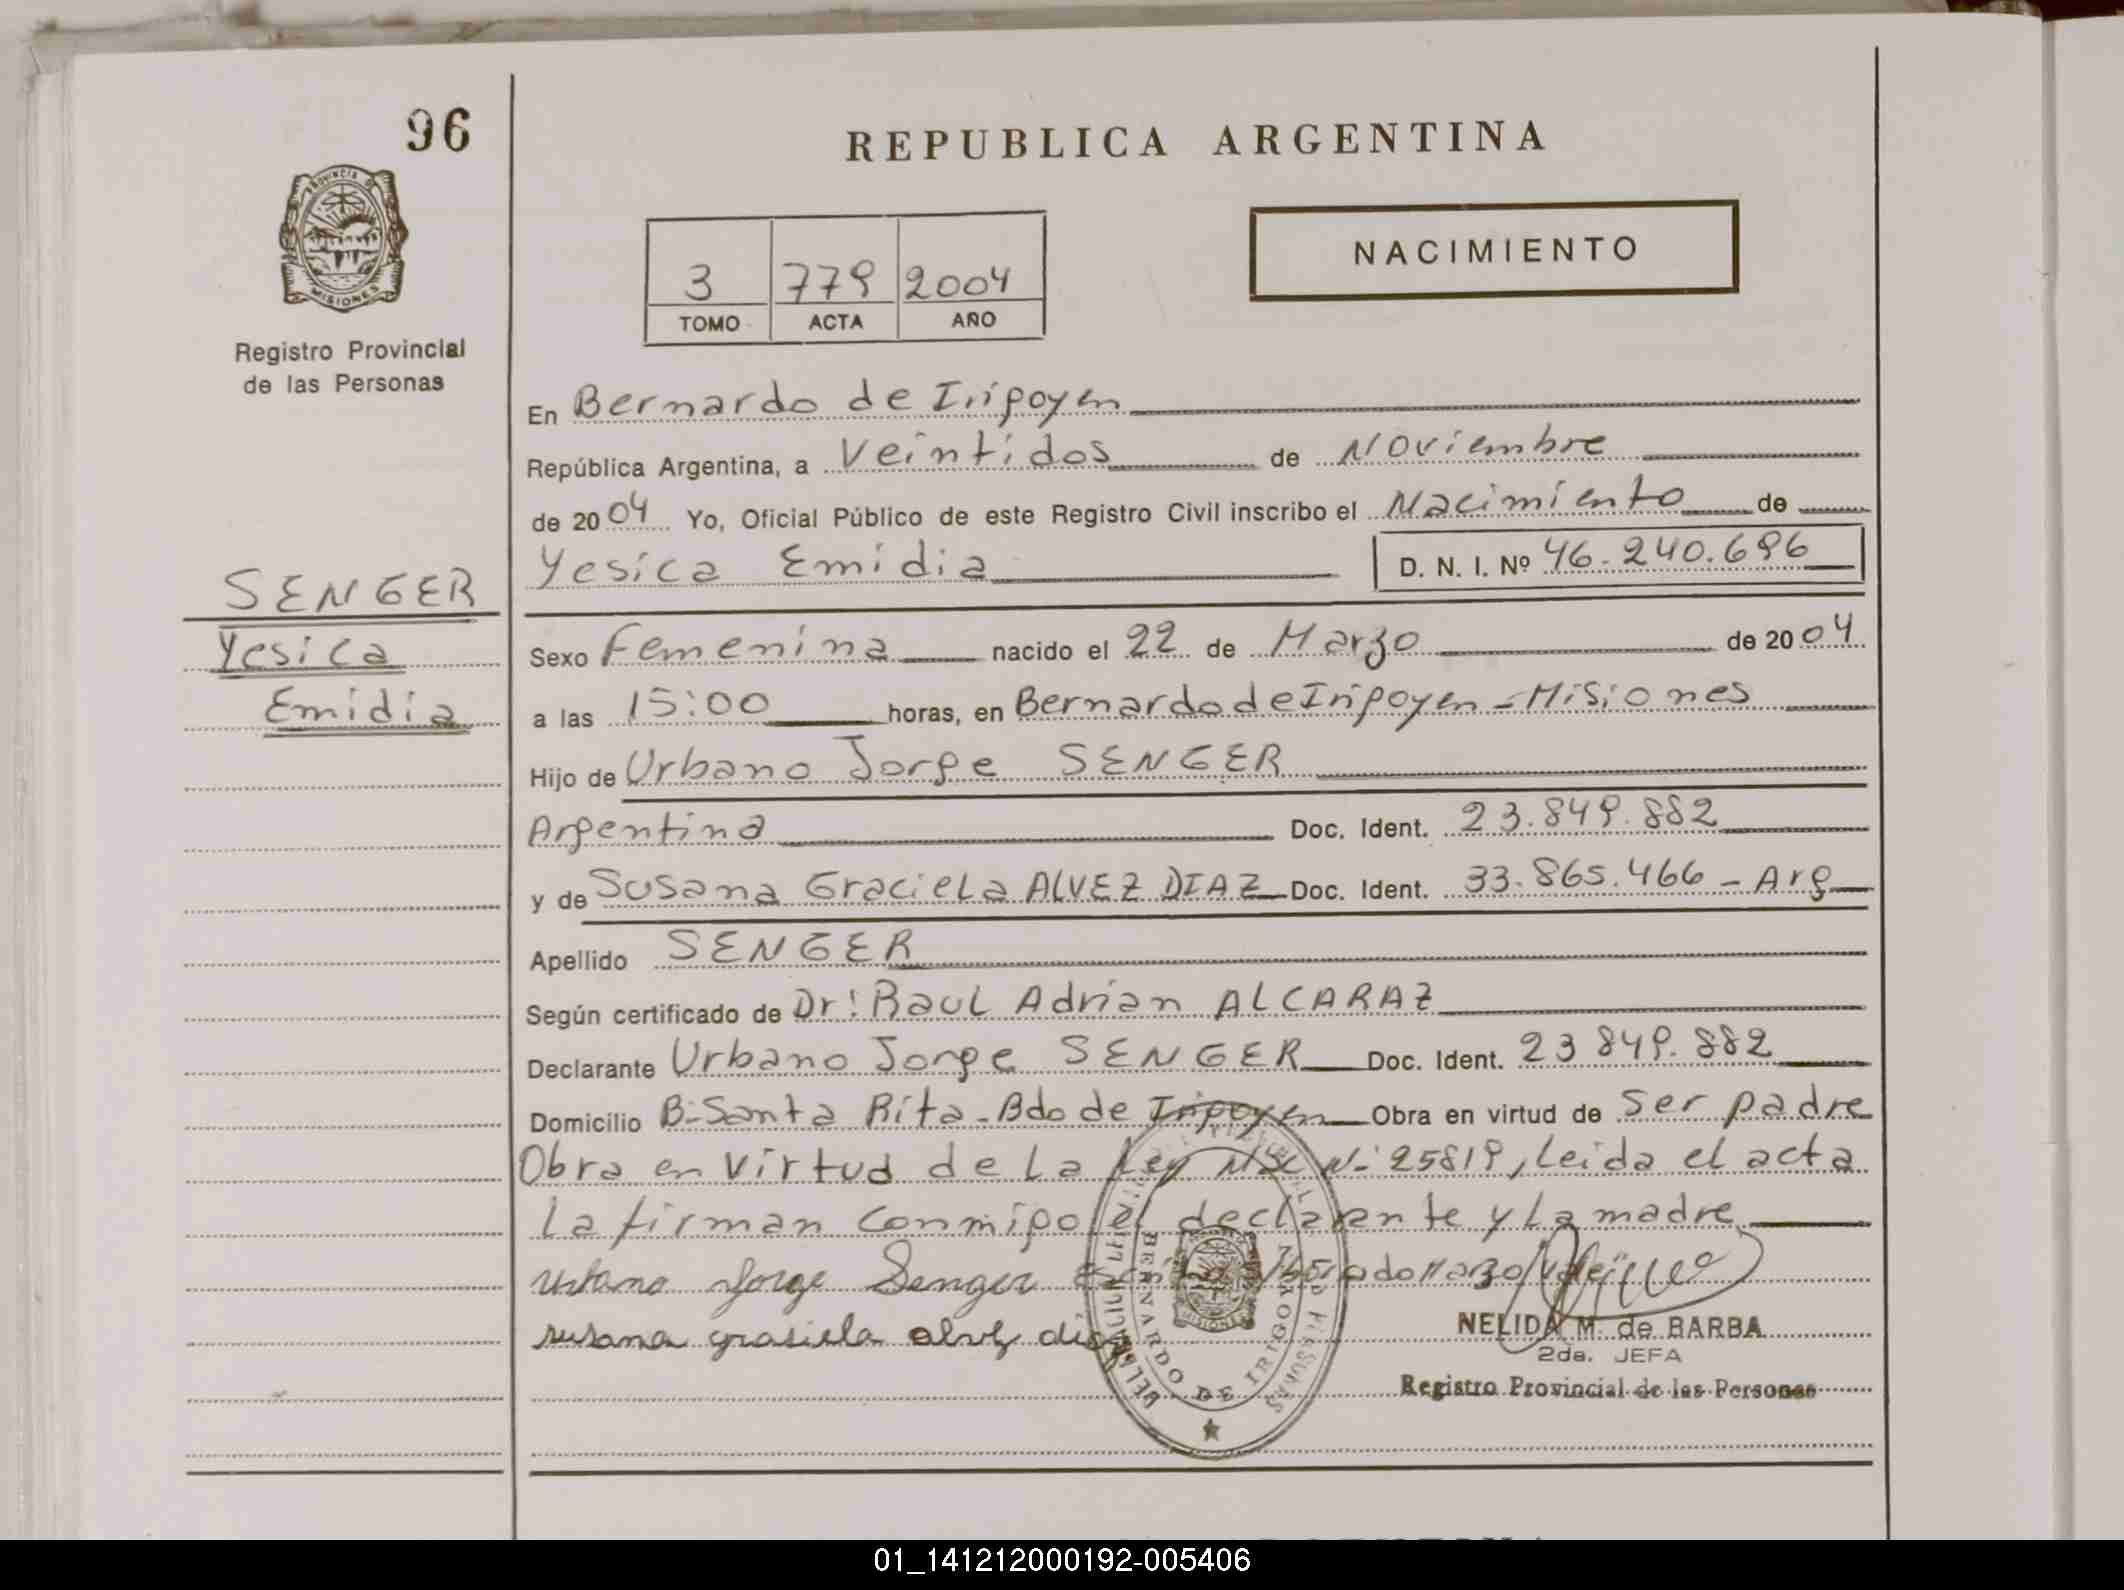 96
REPUBLICA ARGENTINA
PROVINCIA DE
MISIONES
Registro Provincial
de las Personas
3 779 2004
TOMO ACTA AÑO
NACIMIENTO
En Bernardo de Irigoyen
República Argentina, a Veintidos de Noviembre
de 2004 Yo, Oficial Público de este Registro Civil inscribo el Nacimiento de
Yesica Emidia D. N. I. Nº 46.240.696
SENGER
Yesica
Emidia
Sexo Femenina nacido el 22 de Marzo de 2004
a las 15:00 horas, en Bernardo de Irigoyen - Misiones
Hijo de Urbano Jorge SENGER
Argentina Doc. Ident. 23.849.882
y de Susana Graciela ALVEZ DIAZ Doc. Ident. 33.865.466 - Arg
Apellido SENGER
Según certificado de Dr: Raul Adrian ALCARAZ
Declarante Urbano Jorge SENGER Doc. Ident. 23 849.882
Domicilio B: Santa Rita - Bdo de Irigoyen Obra en virtud de Ser padre
Obra en virtud de la Ley N: 25819, Leida el acta
La firman conmigo el declarante y La madre
Urbano Jorge Senger Marzo Vale
susana grasiela alvez diaz
NELIDA M. de BARBA
2da. JEFA
Registro Provincial de las Personas
BERNARDO DE IRIGOYEN
MISIONES
01_141212000192-005406